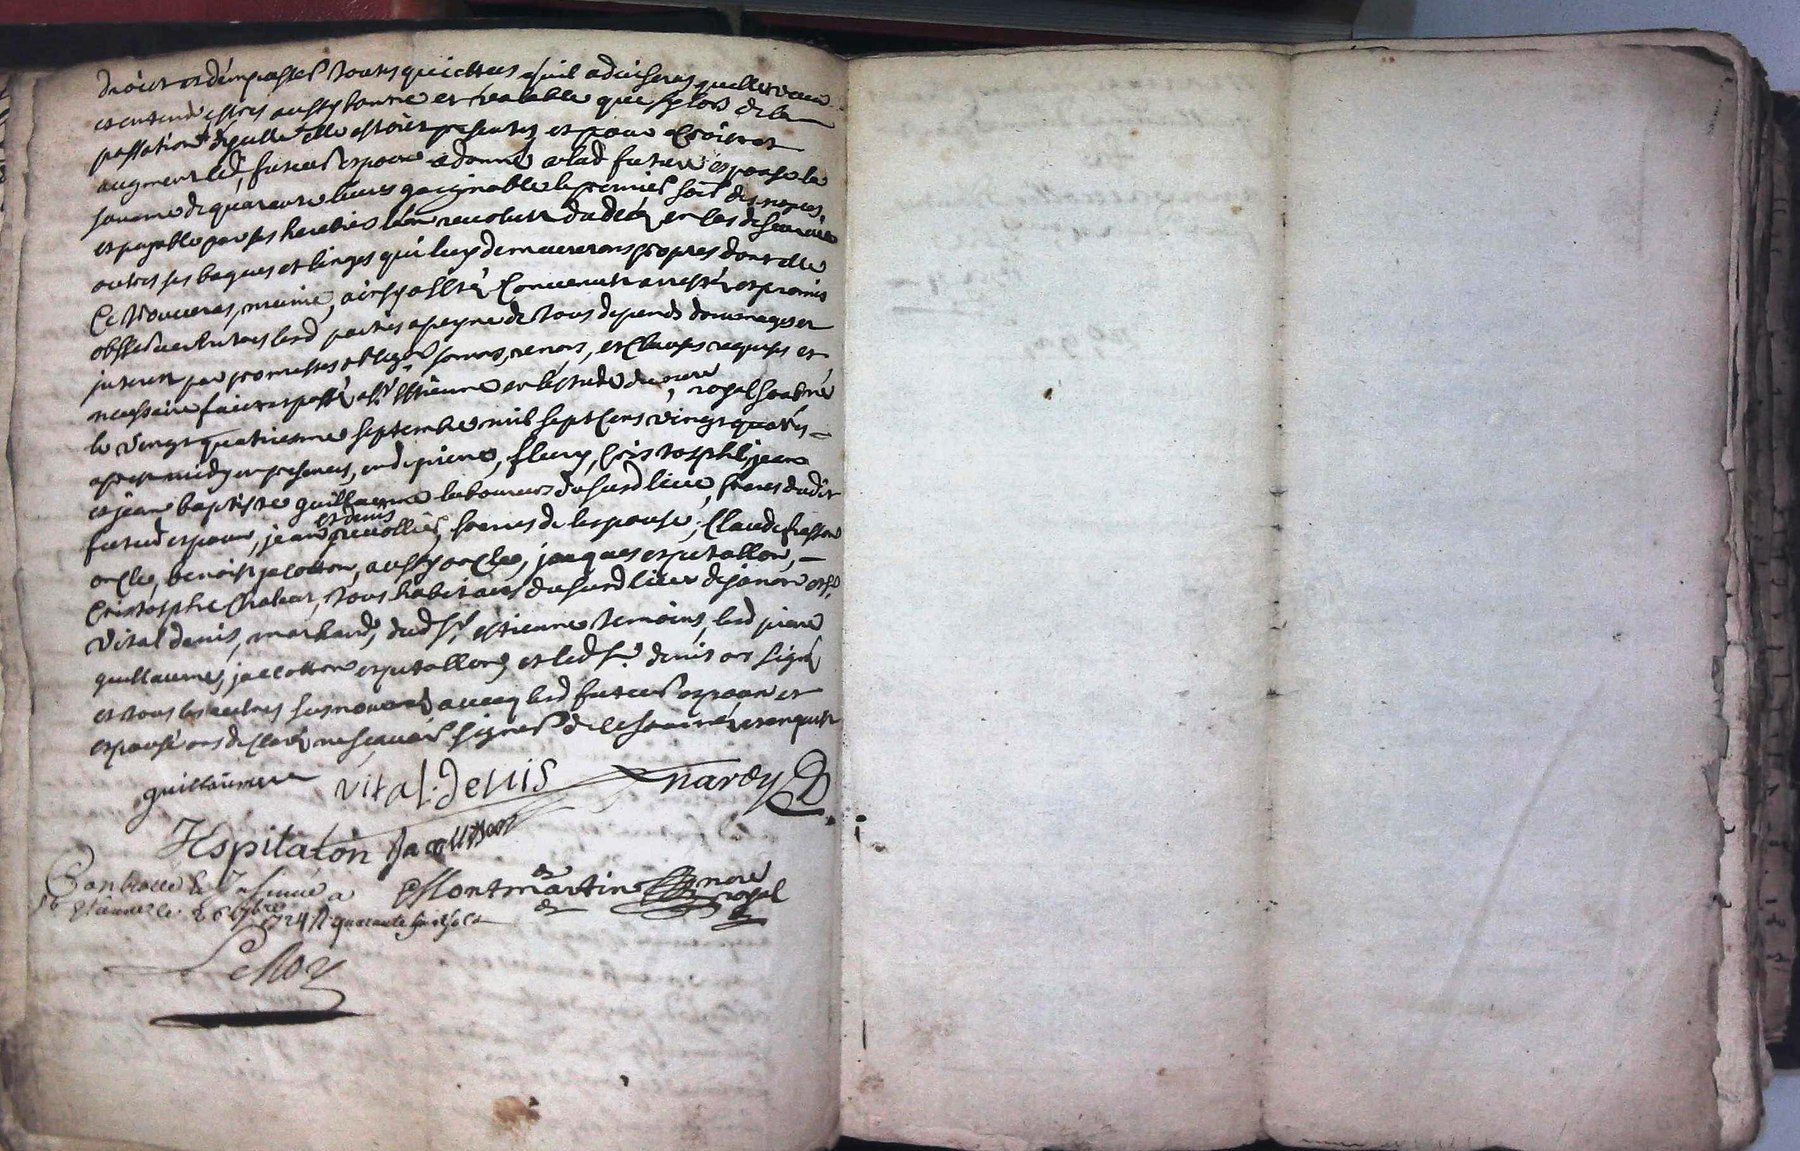 droict et d'en passer toutes quictes qu'il advisera quelle veux
et entend estres aussy bonne et valable que sy lors de la
passation d'iculle elle estoit presente, et pour
augment led. futeur espoux a donné a lad future espouse la
somme de quarente livres gaignable le premier soir des nopces
et payable par ses heretiers l'an revolut du deces
outres ses bagues et linges qui luy demeureront propres dont elle
ce trouveras munie, ainsy a esté convenut arresté et promis
observer entres lesd parties a peyne de tous depends domages et
interest par promesses oblig. soumis, renon, et clauses requises et
necessaire faict et passé a St Estienne en l'estude du no.re royal soubné
le vingt quatriesme septembre mil sept cens vingt quatres
apres midy en presences, de pierre, fleury, Cristosphle, jean
et jean baptiste guillaume laboureurs dusurd lieu, freres dudit
futeur espoux, jean et denis freres de lespouse, Claude
oncle, benoist jacotton, aussy oncle, jacques espitallon,
Cristosphe Chaleat, tous habitans dusurd lieu de et Sr
Vital denis, marchand, dud St estienne temoins, lesd pierre
guillaume, jacotton espitallon, et led Sr. denis ont signé
et tous les autres susnommés avecq lesd futeur espoux et
espouse ont declaré ne scavoir signer de ce sommés et enquis
guillaumme vital: denis nardy
Espitalon Jacotton
Controllé & Insinué a Montmartin no.re
St Etienne le 26 7bre royal
1724 R quarante huit sols
Leroy